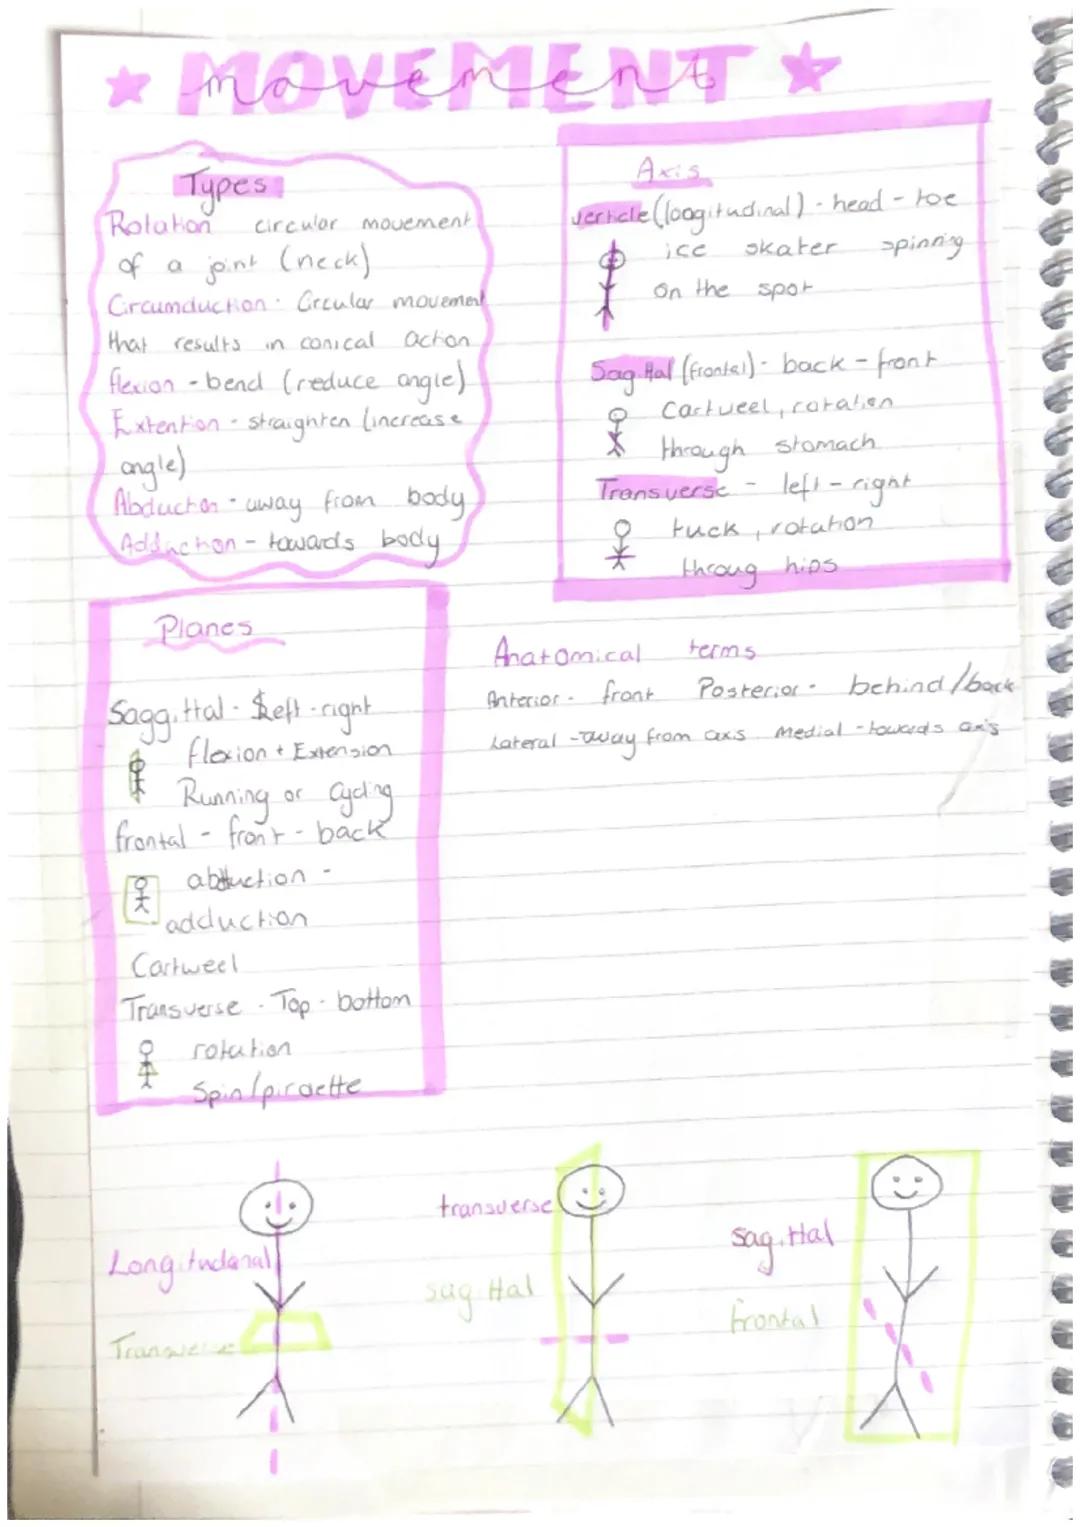 MOVEMENT
movement
Types
Rotation circular movement
of a joint (neck)
Circumduction: Circular movement
that results in conical action
flexion - bend (reduce angle)
Extention - straighten (increase
angle)
Abduction - away from body
Adduction - towards body
Axis
verticle (longitudinal) - head - toe
ice skater spinning
on the spot
Sagittal (frontal) - back - front
Cartweel, rotation
through stomach
Transverse - left - right
tuck, rotation
throug hips
Planes
Saggittal - Left - right
flexion + Extension
Running or Cycling
frontal - front - back
abduction -
adduction
Cartweel
Transverse - Top - bottom
rotation
Spin/piroette
Anatomical terms
Anterior - front Posterior - behind/back
Lateral - away from axis Medial - towards axis
Longitudanal
Transverse
transverse
sagittal
sagittal
frontal